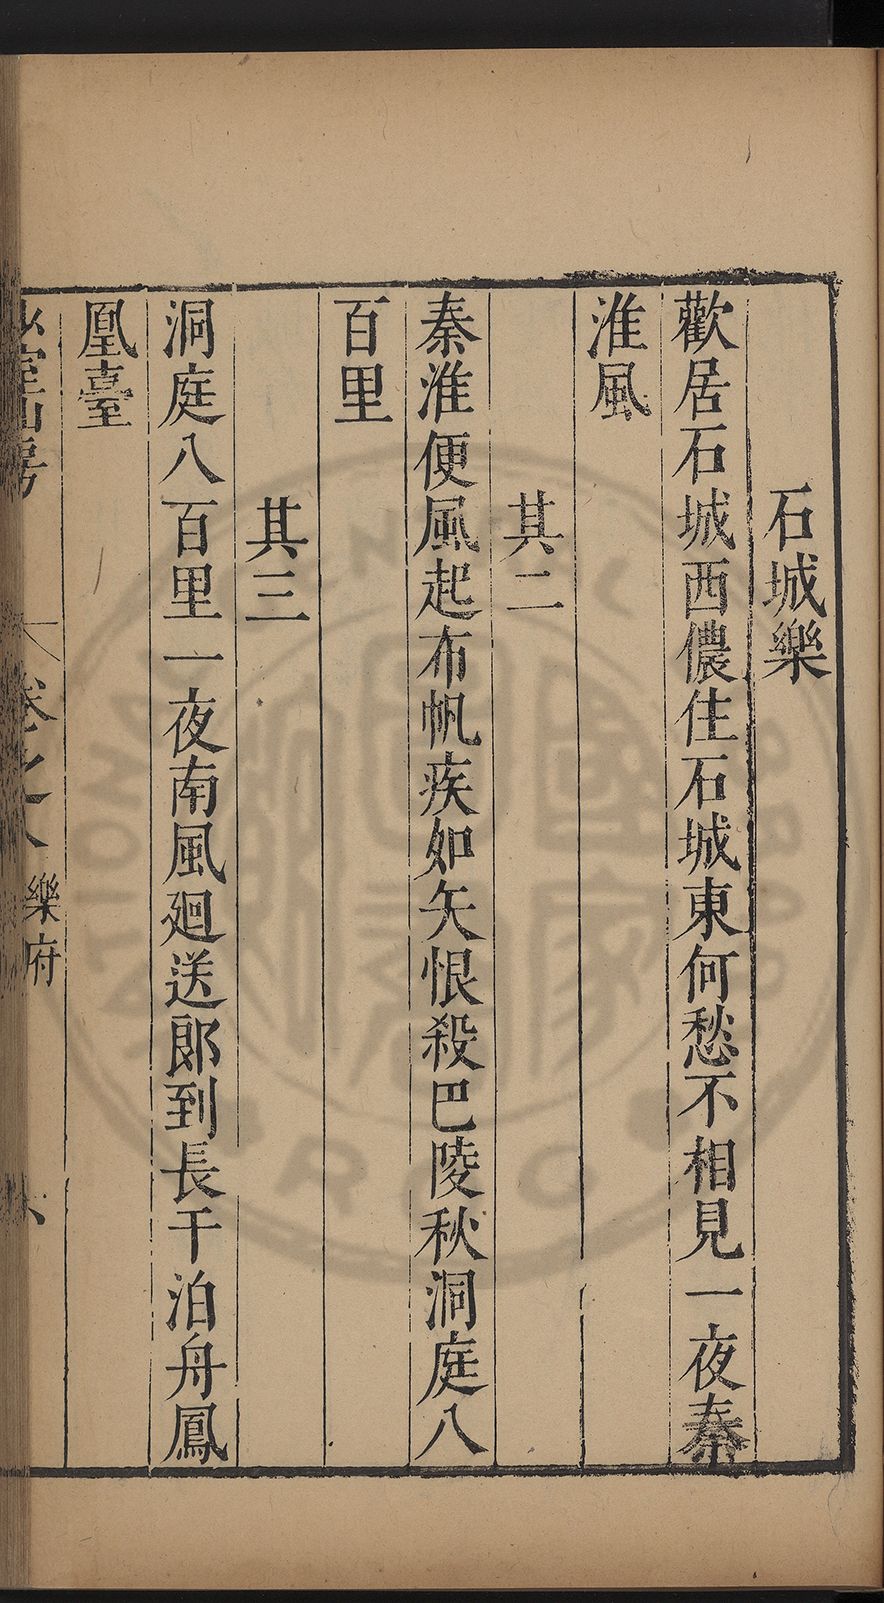 石城樂
歡居石城西儂住石城東何愁不相見一夜秦
淮風
其二
秦淮便風起布帆疾如矢恨殺巴陵秋洞庭八
百里
其三
洞庭八百里一夜南風廻送郎到長干泊舟鳳
凰臺
室山房
卷之八
樂府